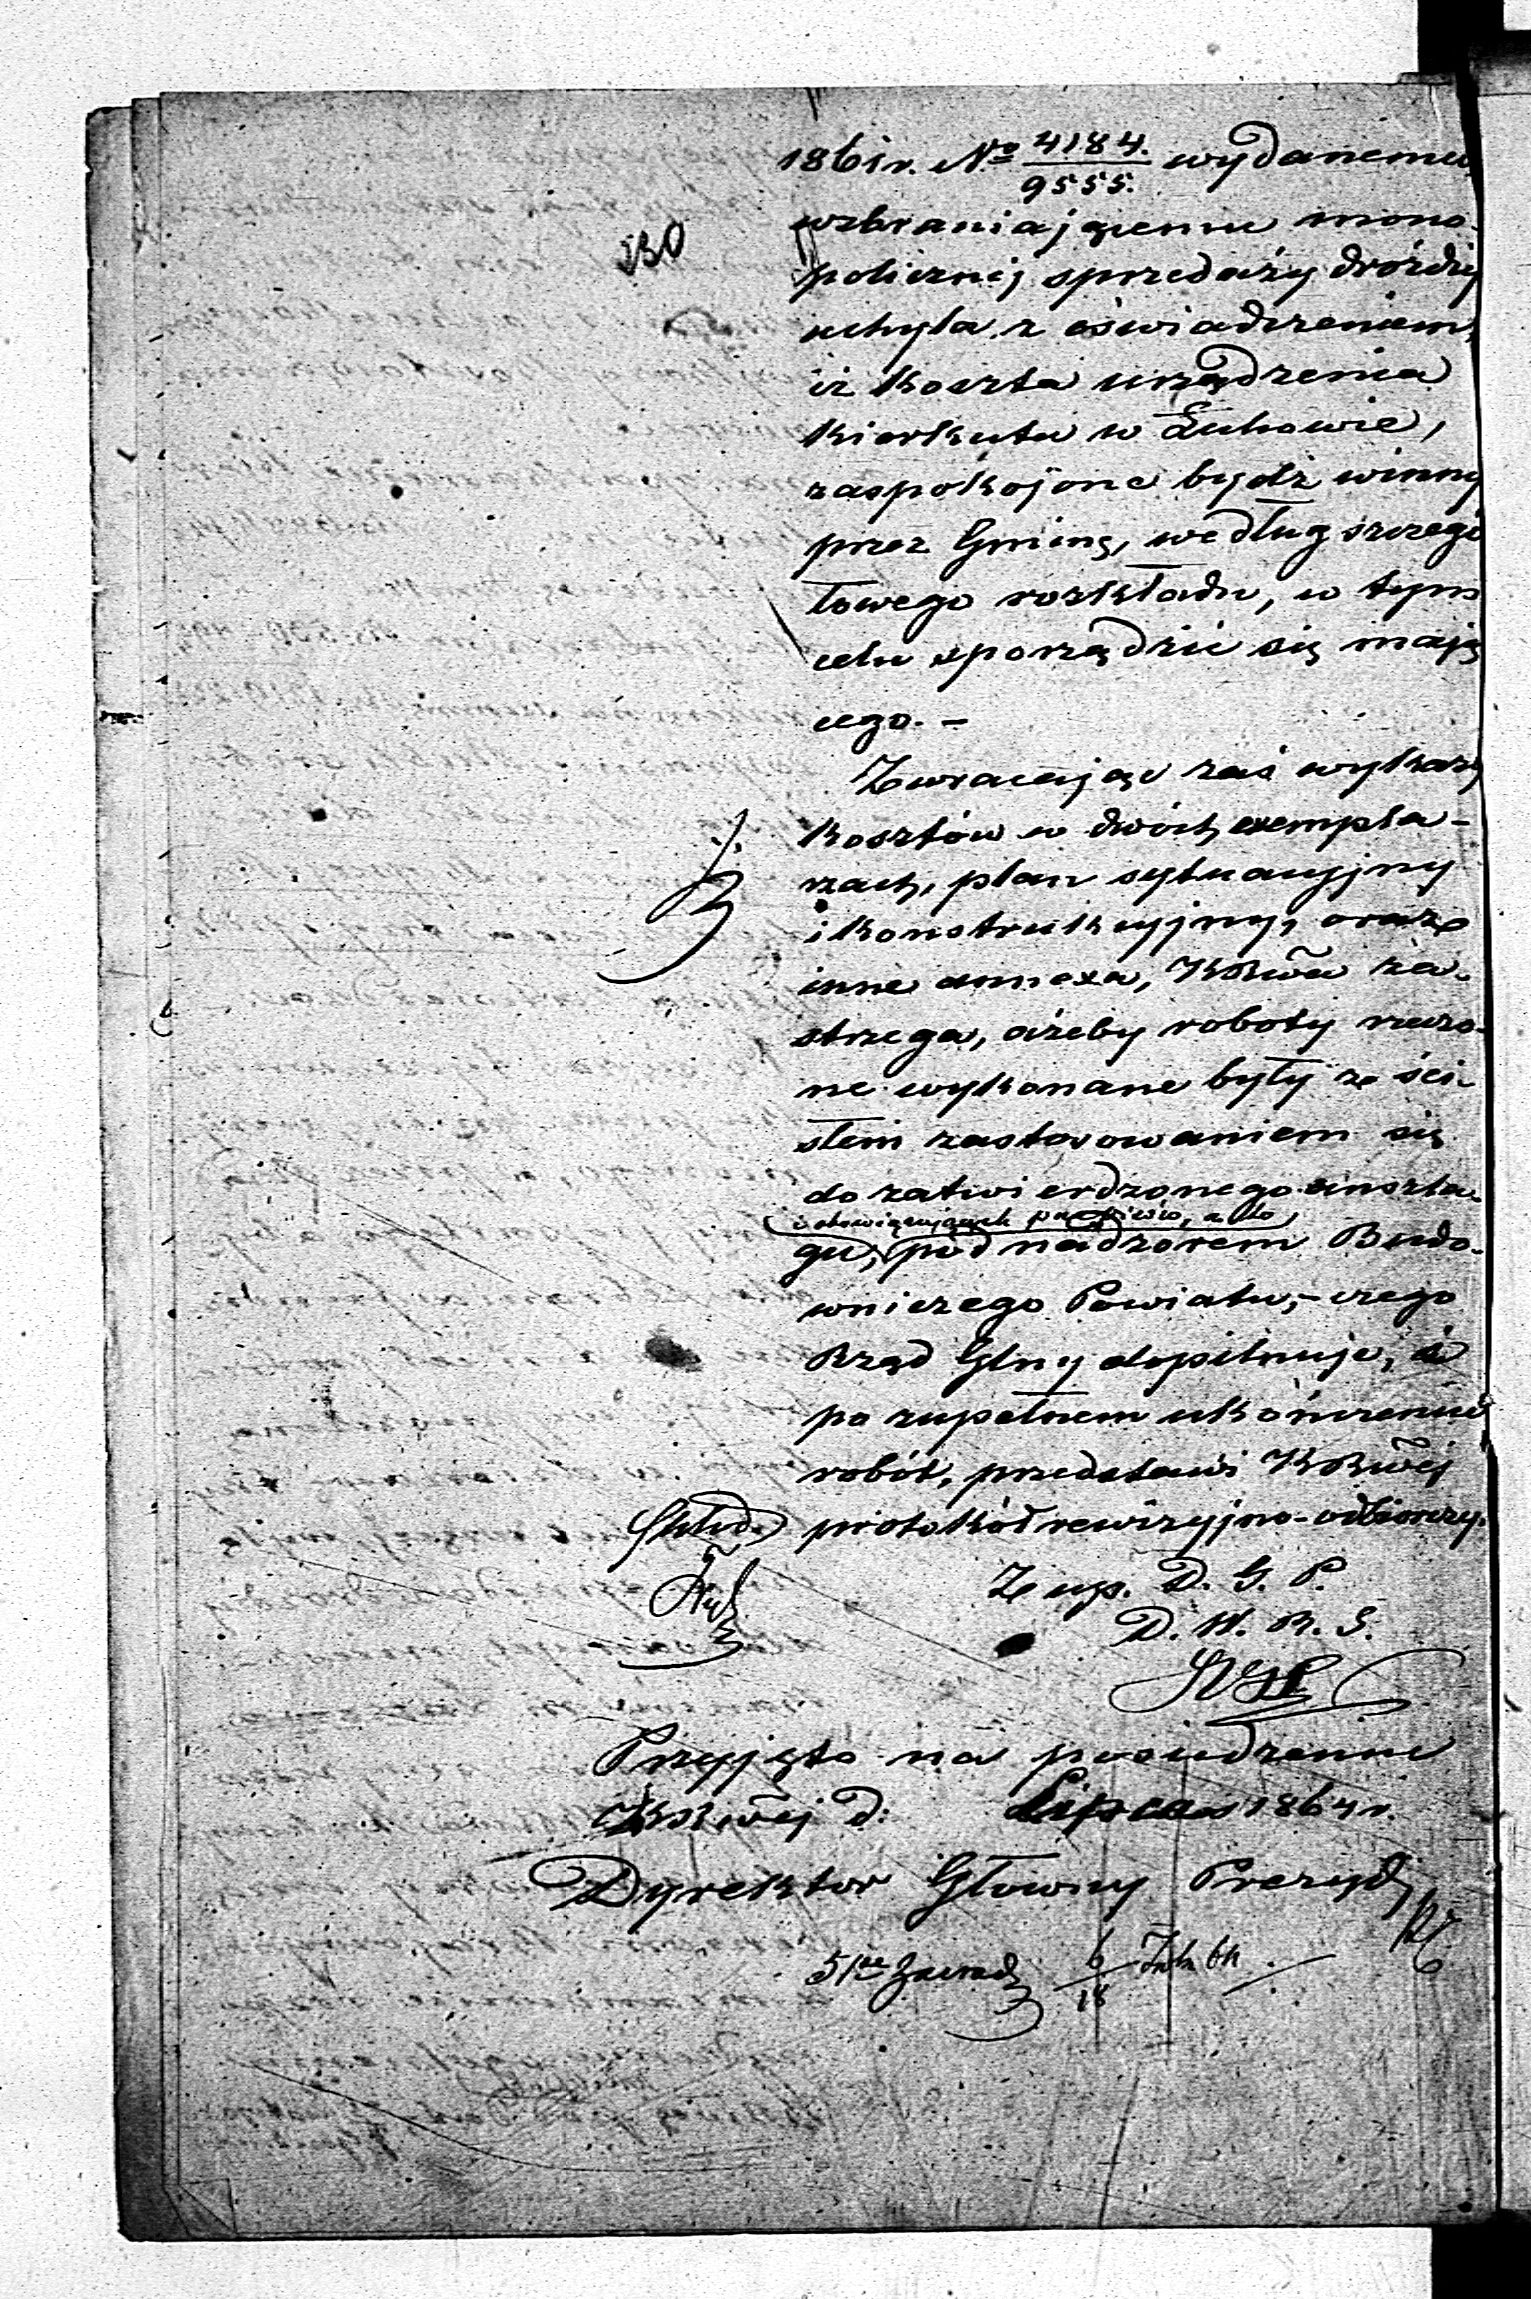 1861 r. No 4184./9555. wydanemu
wzbraniającemu mono-
policznej sprzedaży drożdży
uchyla, z oświadczeniem,
iż koszta urządzenia
kierkutu w Łukowie,
zaspokojone bydź winny
przez Gminę, według szczegó
łowego rozkładu, w tym
celu sporządzić się mają
cego. –
Zwracając zaś wykazy
kosztów w dwóch exempla-
rzach, plan sytuacyjny
i konstrukcyjny, oraz
inne annexa, KRwa za-
strzega, ażeby roboty rzeczo-
ne wykonane były ze ści-
słem zastosowaniem się
do zatwierdzonego anszla-
i obowiązujących przepisów, a to
gu, pod nadzorem Budo-
wniczego Powiatu, – czego
Rząd Glny dopilnuje, i
po zupełnem ukończeniu
robót, przedstawi KRwej
protokół rewizyjno-odbiorczy.
Z up. D. G. P.
D. W. R. S.
Przyjęto na posiedzeniu
KRwej d: Lipca 1864 r.
Dyrektor Główny Prezyd
6/18
230